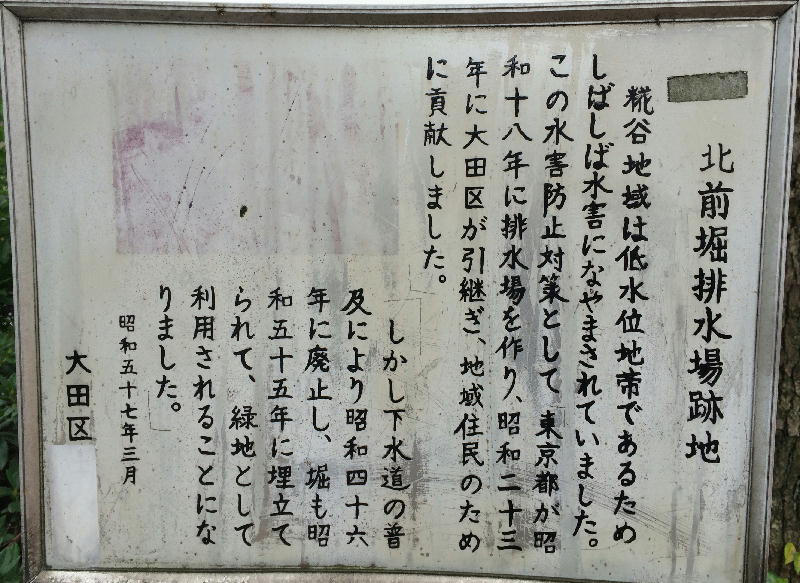 北前堀排水場跡地
糀谷地域は低水位地帯であるため
しばしば水害になやまされていました。
この水害防止対策として、東京都が昭
和十八年に排水場を作り、昭和二十三
年に大田区が引継ぎ、地域住民のため
に貢献しました。
しかし下水道の普
及により昭和四十六
年に廃止し、堀も昭
和五十五年に埋立て
られて、緑地として
利用されることにな
りました。
昭和五十七年三月
大田区